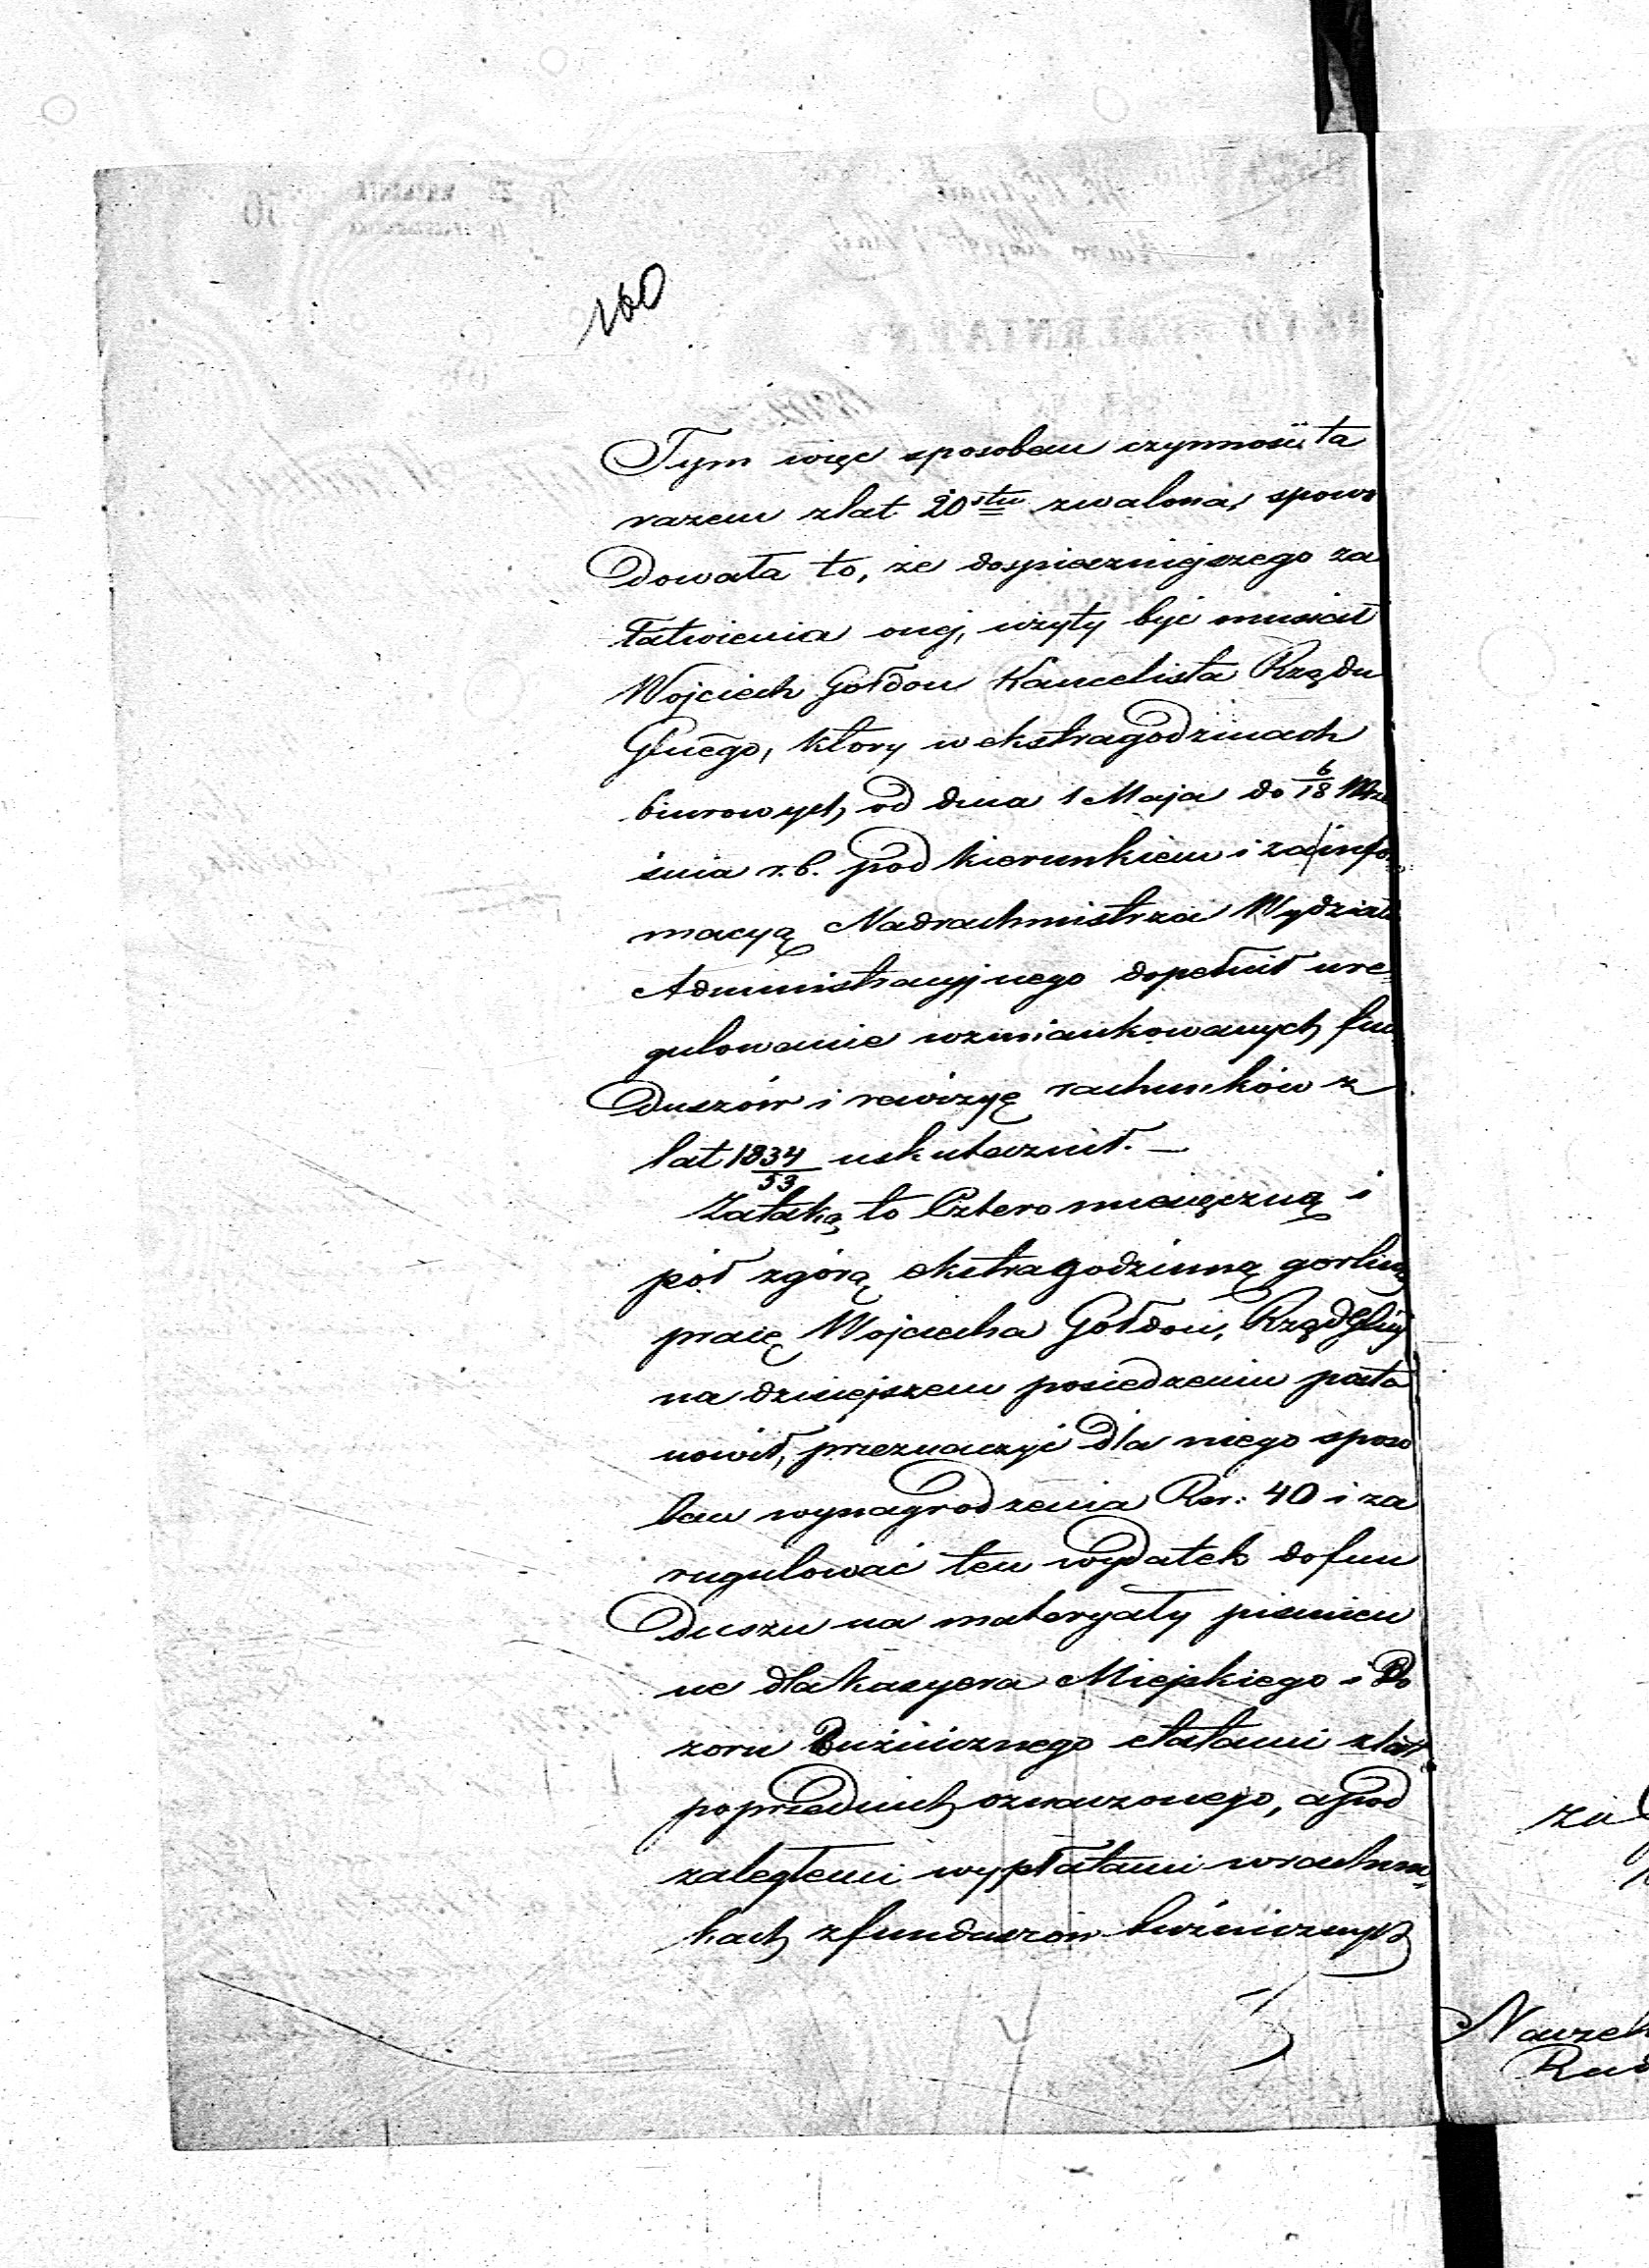 160
Tym więc sposobem czynność ta
razem z lat 20stu zwalona, spowo
dowała to, że do spieszniejszego za
łatwienia onej, użyty być musiał
Wojciech Gołdon Kancelista Rządu
Glnego, który w ekstragodzinach
biurowych, od dnia 1 Maja do 6/18 Wrze
śnia r.b. pod kierunkiem i za infor
macyą Nadrachmistrza Wydziału
Administracyjnego dopełnił ure=
gulowanie wzmiankowanych fun
duszów i rewizyę rachunków z
lat 1834/53 uskutecznił. —
Za taką to cztero miesięczną i
pół zgórą ekstragodzinną gorliwą
pracę Wojciecha Gołdon, Rząd Glny
na dzisiejszem posiedzeniu posta
nowił, przeznaczyć dla niego sposo
bem wynagrodzenia Rsr: 40 i za
regulować ten wydatek do fun
duszu na materyały piśmien
ne dla kasyera Miejskiego i Do
zoru Bużnicznego etatami z lat
poprzednich oznaczonego, a pod
zaległemi wypłatami w rachun=
kach z funduszów bużnicznych